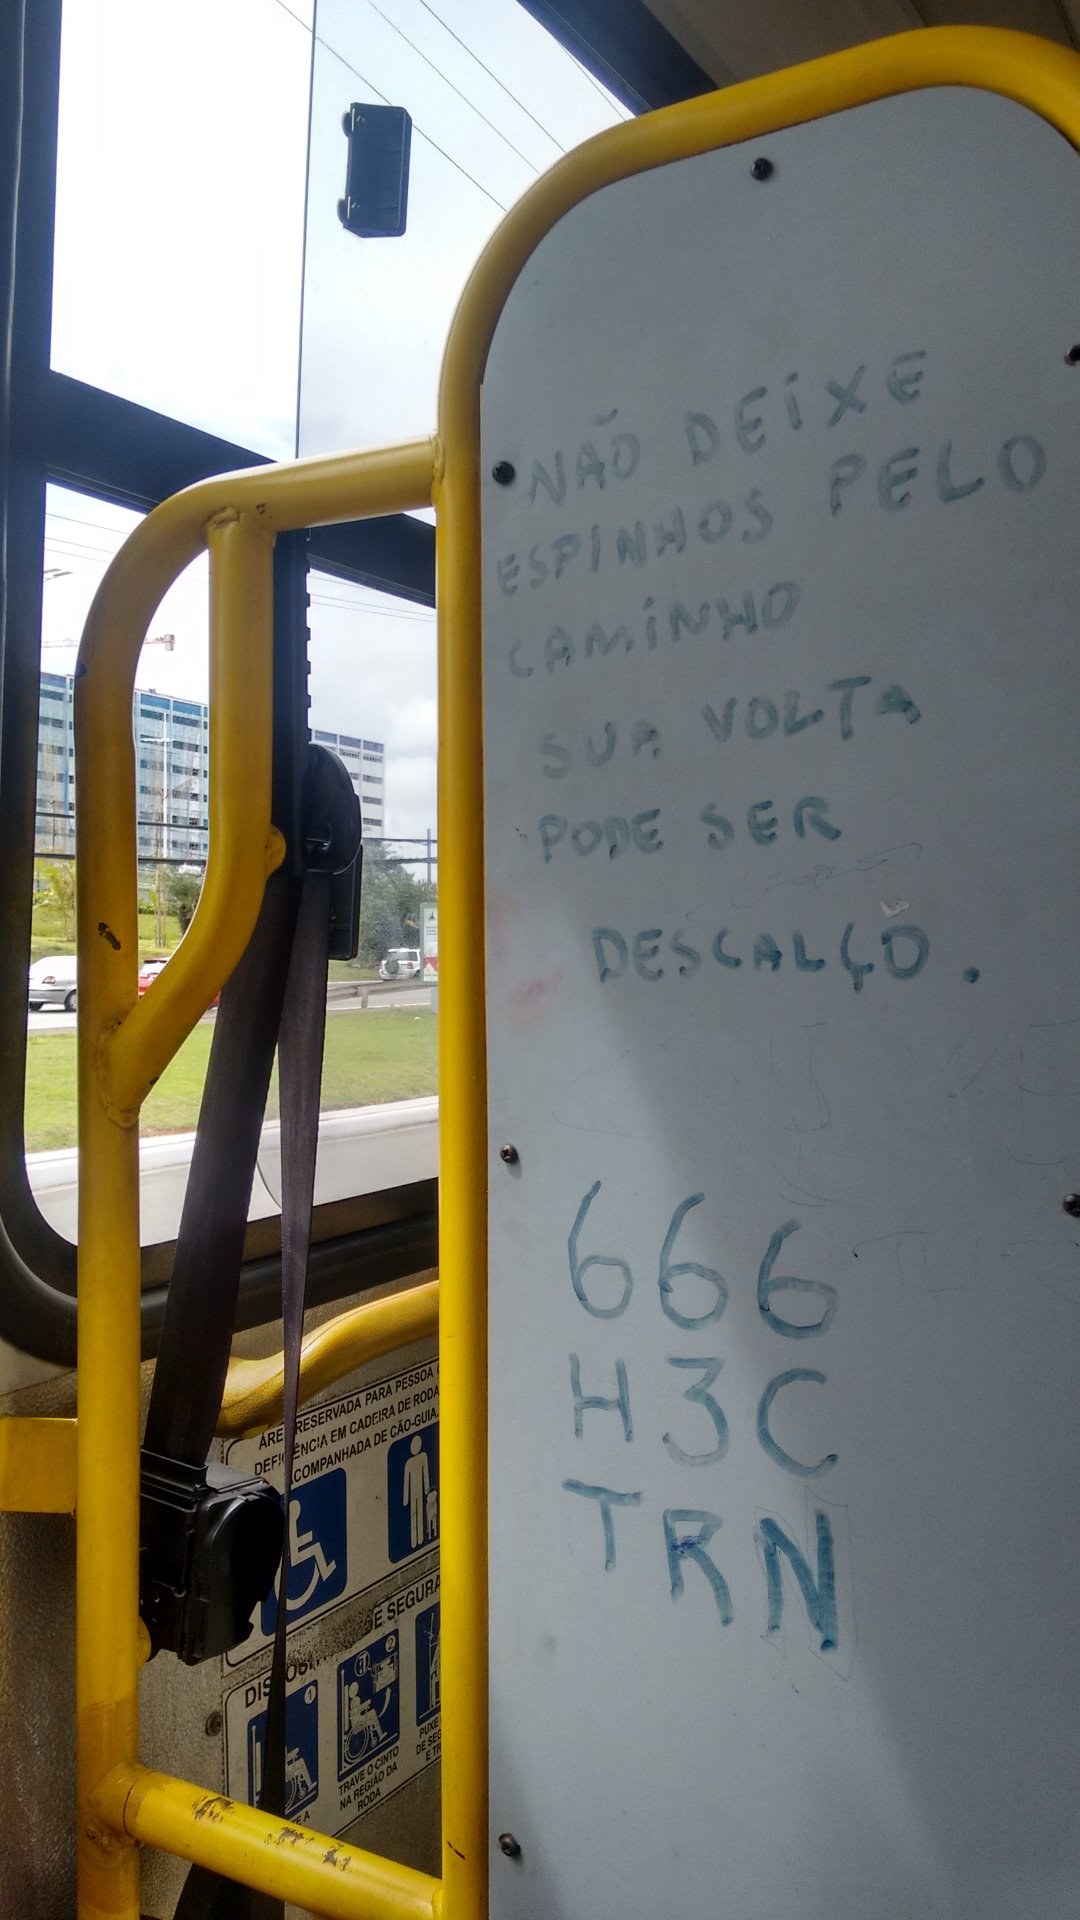 NÃO DEiXE
ESPiNHOS PELO
CAMiNHO
SUA VOLTA
PODE SER
DESCALÇO.
666
H3C
TRN
RESERVADA PARA PESSOA
DEFICIÊNCIA EM CADEIRA DE RODA
ACOMPANHADA DE CÃO-GUIA.
E SEGURA
1
2
TRAVE O CINTO
NA REGIÃO DA
RODA
PUXE
DE SEG